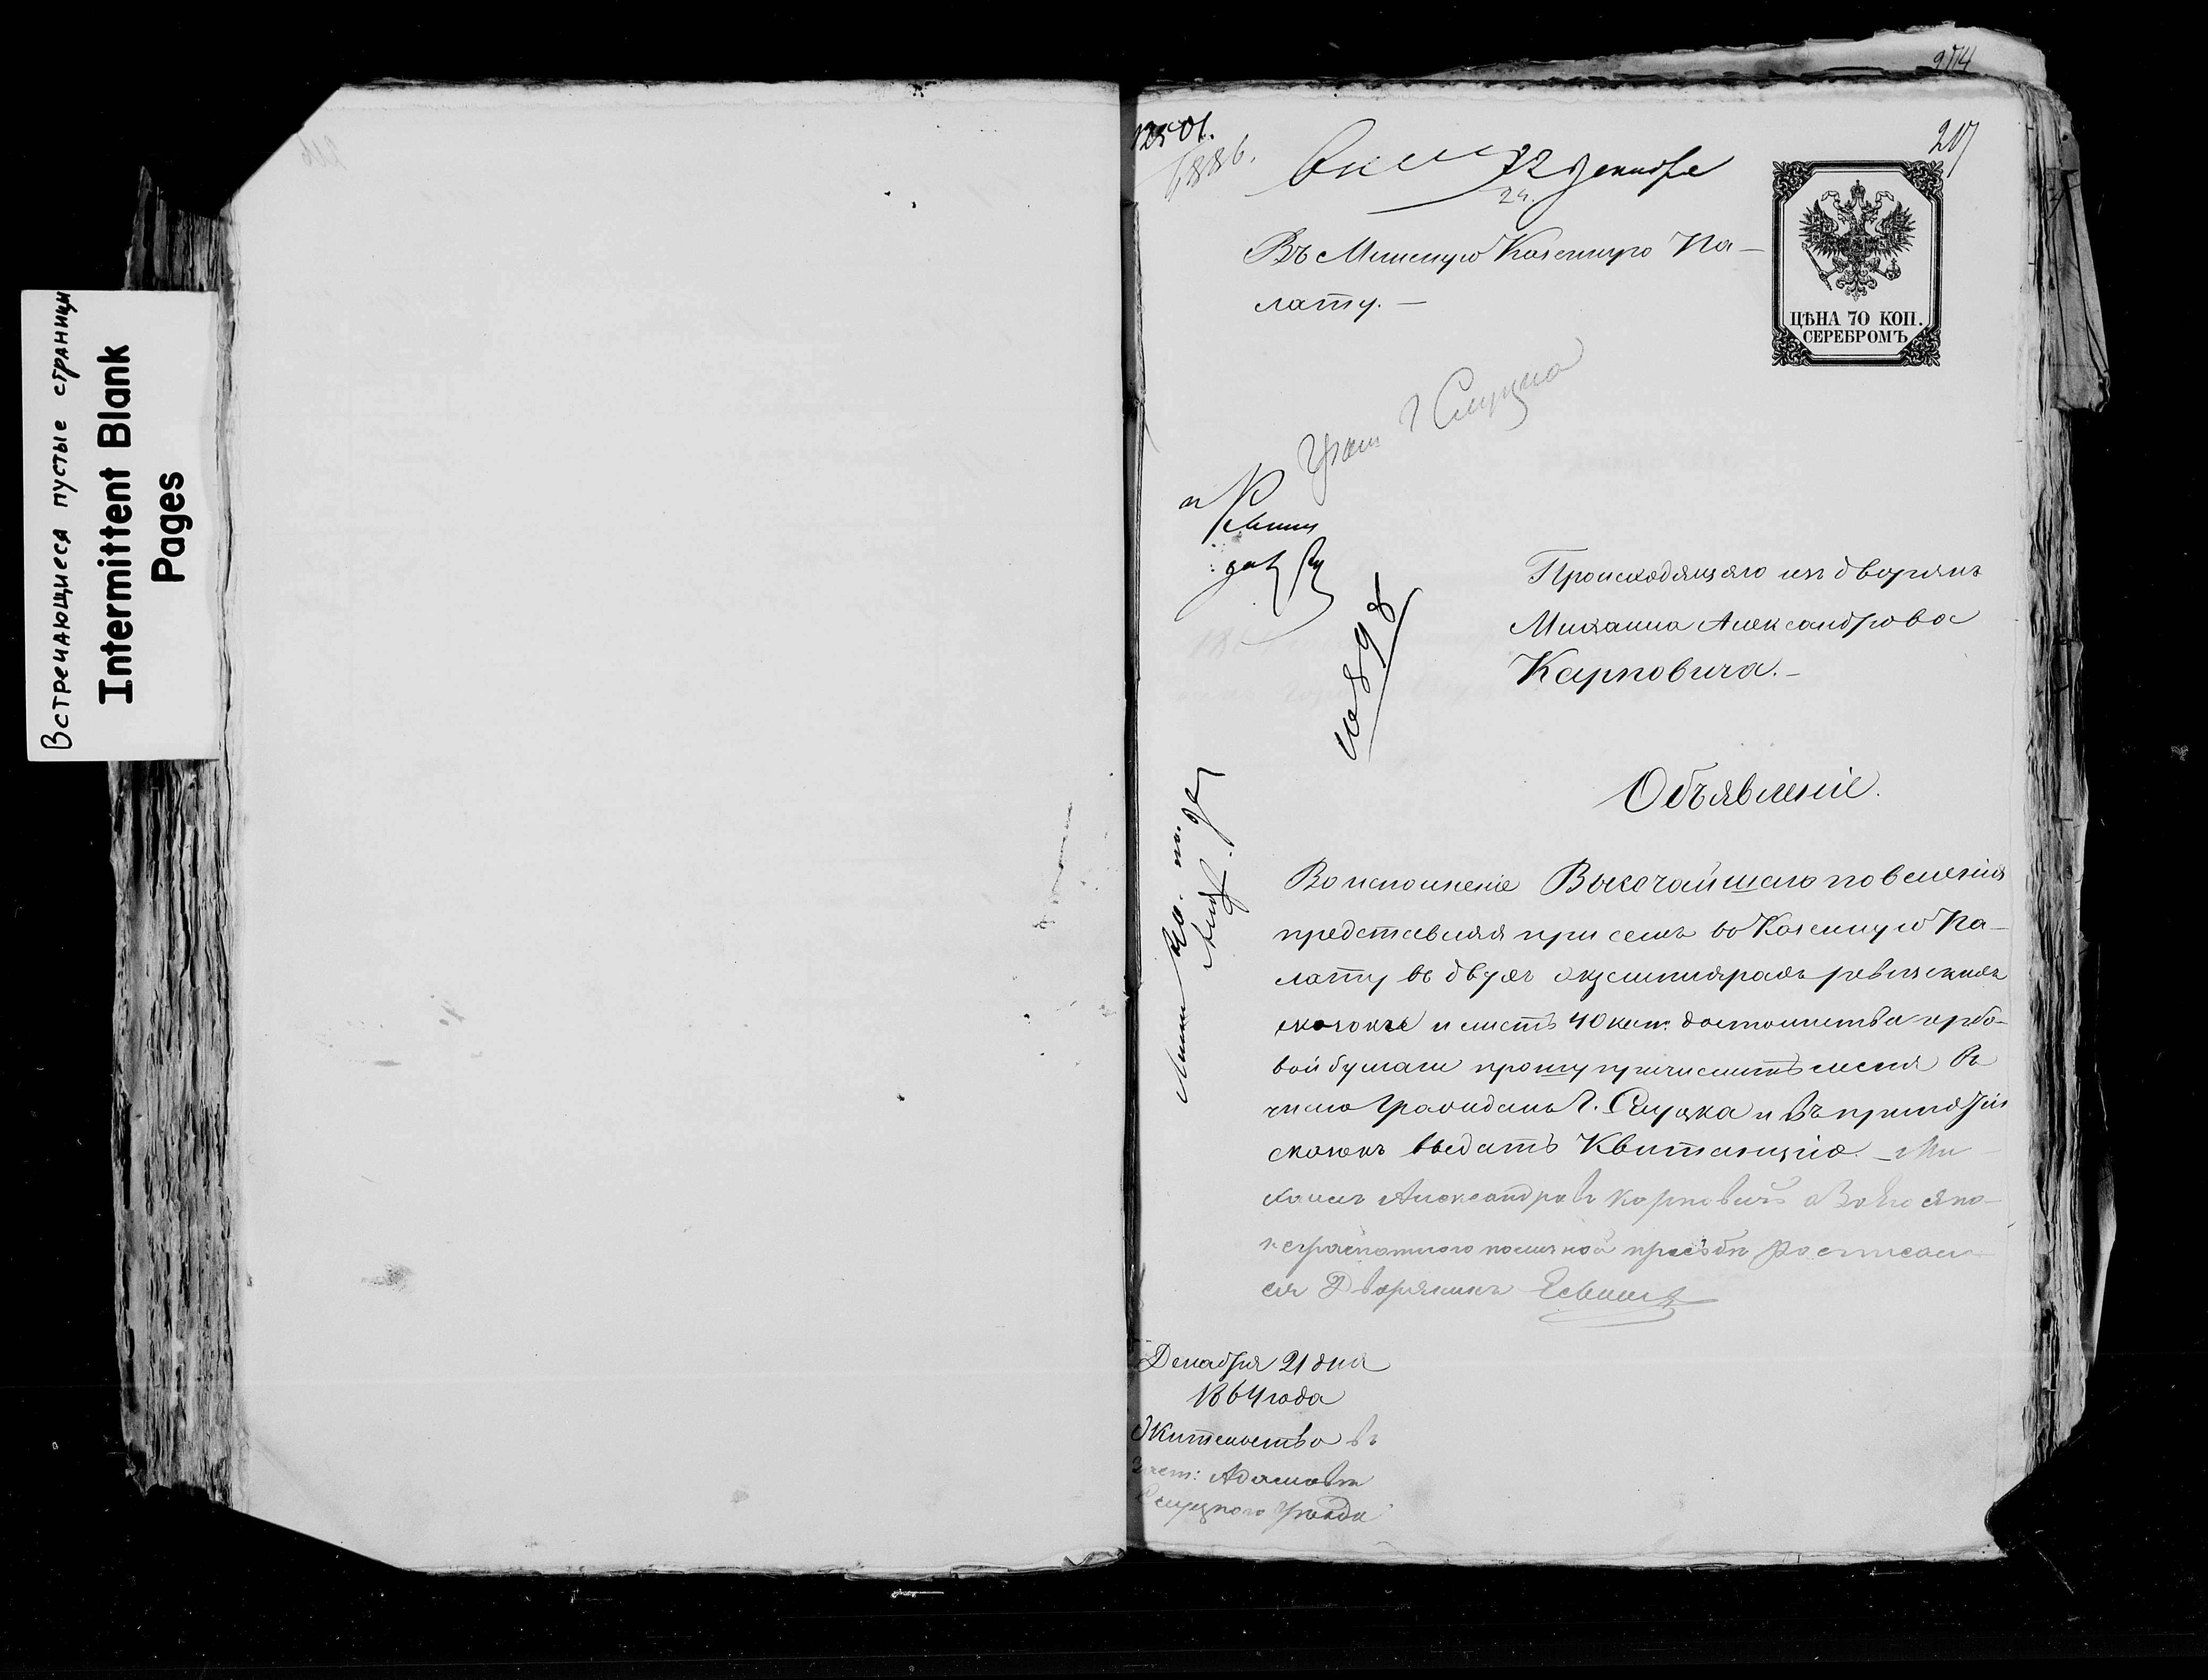 Встречающиеся пустые страницы
Intermittent Blank
Pages
274
217
12501.
22 Декабря
24.
Въ Минскую Казенную Па-
лату. —
ЦѢНА 70 КОП.
СЕРЕБРОМЪ
Граж Г Слуцка
№ 898
Происходящаго изъ дворянъ
Михаила Александрова
Карповича. —
Объявленіе.
Во исполненіе Высочайшаго повеленія
представляя при семъ во Казенную Па-
лату въ двухъ экземплярахъ ревизскихъ
сказокъ и листъ 40 коп. достоинства гербо-
вой бумаги прошу причислить меня въ
число Гражданъ Г. Слуцка и въ пріютѣ
сказокъ выдать Квитанцію. — Ми
хаилъ Александровъ Карповичъ а Вместо его
неграмотного по личной просьбѣ Росписал-
ся Дворянинъ
Декабря 21 дня
1864 года
Жительство въ
Заст: Адамовѣ
Слуцкого Уѣзда